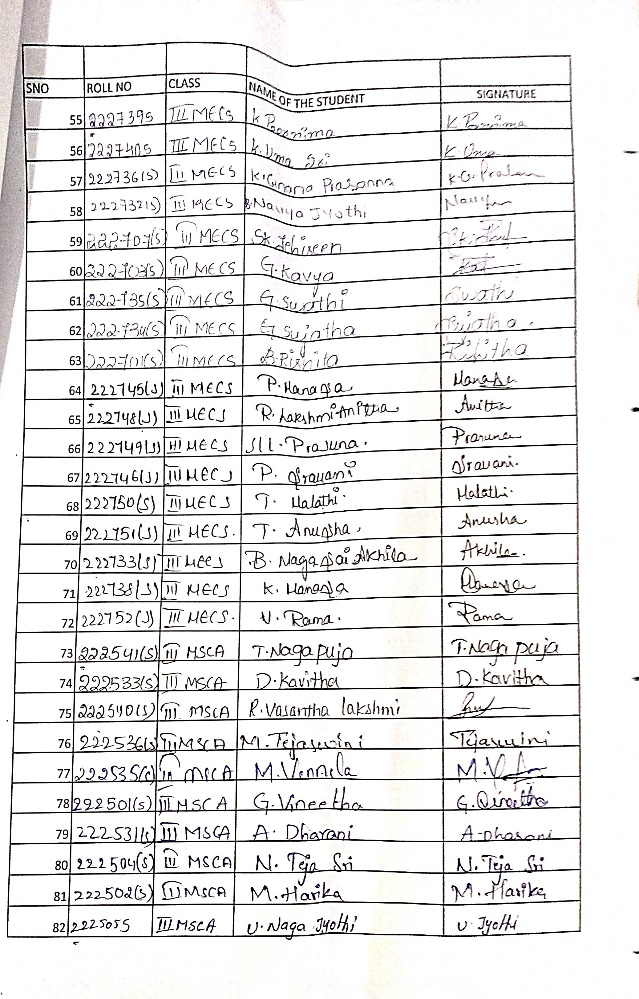 SNO ROLL NO CLASS NAME OF THE STUDENT SIGNATURE
55 222739S III MECS K Poornima K Poornima
56 222740S III MECS K. Uma Sri K Uma
57 222736(S) III MECS K. Gnana Prasanna K.G. Prasan
58 222732(S) III MECS B Navya Jyothi
59 222707(S) III MECS Sk.
60 222703(S) III MECS G. Kavya
61 222735(S) III MECS G. Swathi Swathi
62 222734(S) III MECS G Sujatha Sujatha.
63 222701(S) III MECS B. Rishita Rishitha
64 222745(S) III MECS P. Manasa Manasa
65 222748(S) III MECS R. Lakshmi Anitha Anitha
66 222749(S) III MECS Prasuna. Prasuna
67 222746(S) III MECS P. Sravani Sravani.
68 222750(S) III MECS T. Malathi. Malathi.
69 222751(S) III MECS. T. Anusha. Anusha
70 222733(S) III MECS B. Naga Sai Akhila Akhila.
71 222738(S) III MECS K. Manasa Manasa
72 222752(S) III MECS. V. Rama. Rama
73 222541(S) III MSCA T. Naga puja T. Naga puja
74 222533(S) III MSCA D. Kavitha D. Kavitha
75 222540(S) III MSCA R. Vasantha lakshmi
76 222536(S) III MSCA M. Tejaswini Tejaswini
77 222535(S) III MSCA M. Vennela
78 222501(S) III MSCA G. Vineetha G. Vineetha
79 222531(S) III MSCA A. Dharani A. Dharani
80 222504(S) III MSCA N. Teja Sri N. Teja Sri
81 222502(S) III MSCA M. Harika M. Harika
82 222505S III MSCA V. Naga Jyothi V. Jyothi